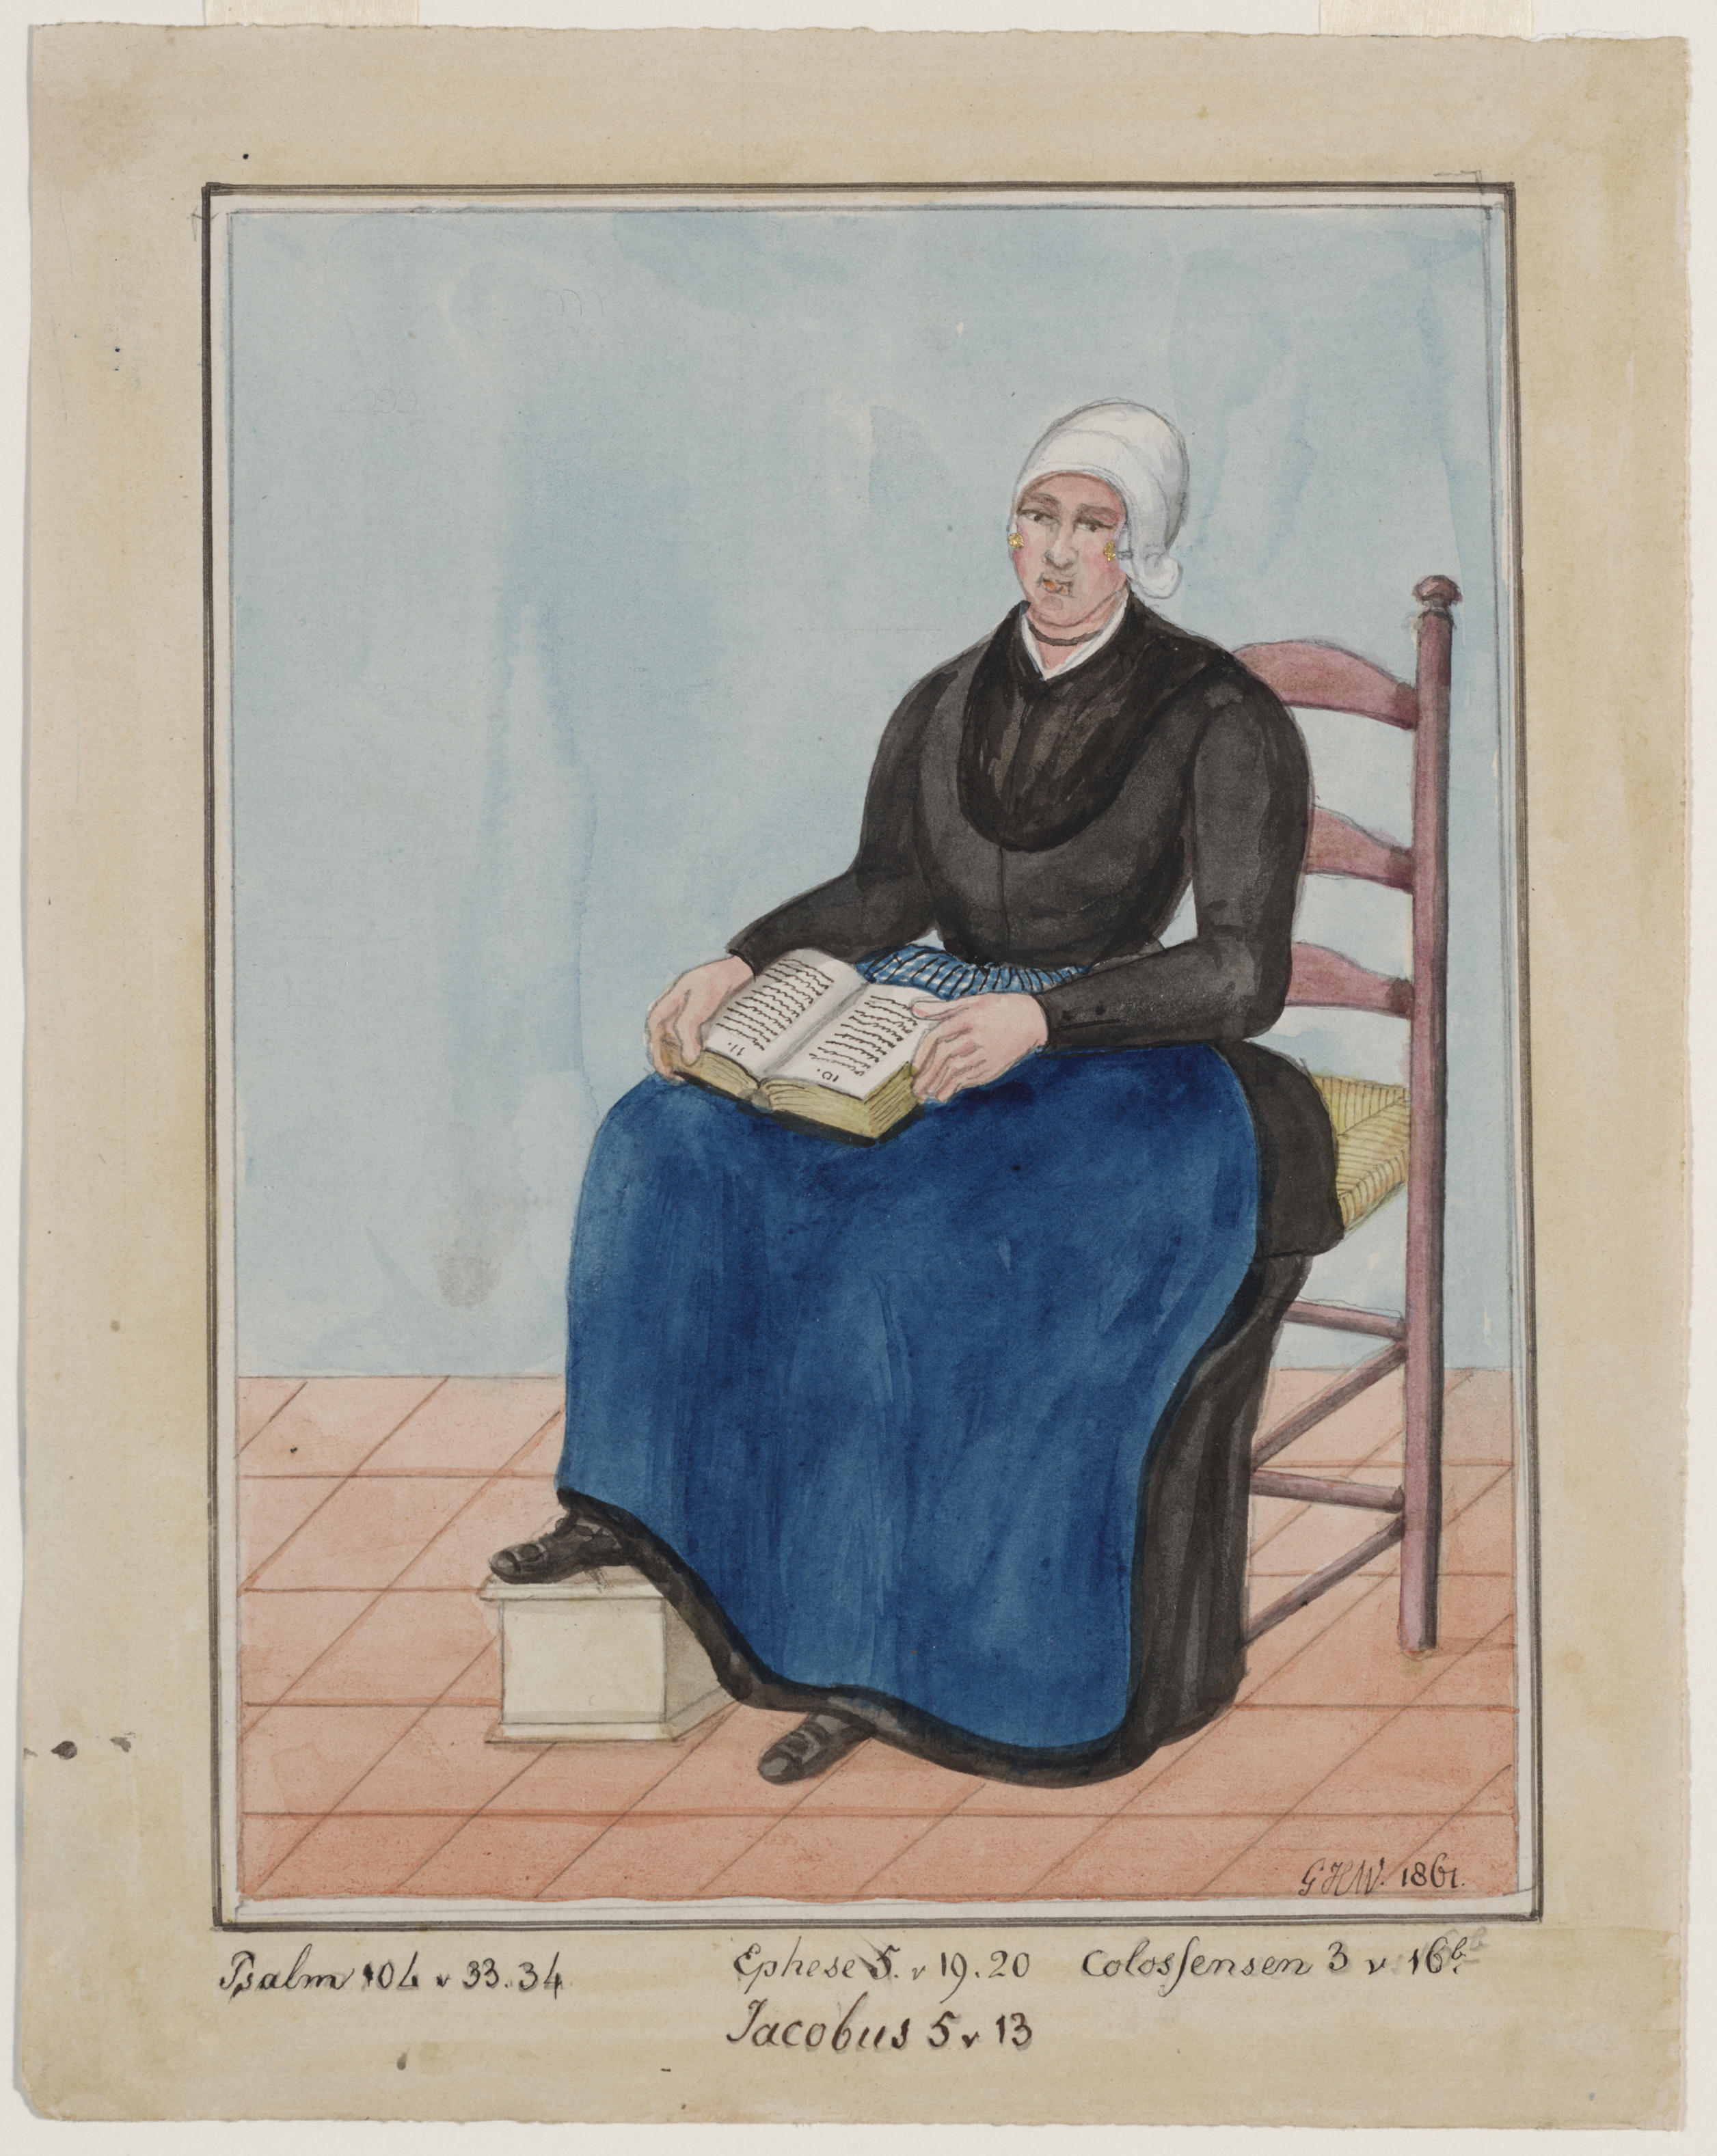 11.
10.
GHW. 1861.
Psalm 104 v 33.34
Ephese 5. v 19.20
Colosſensen 3 v 16b.
Jacobus 5 v 13